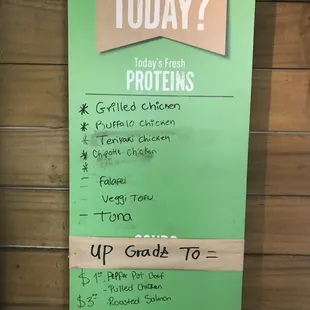 TODAY?
Today's Fresh
PROTEINS
* Grilled chicken
* Buffalo chicken
* Teriyaki chicken
* Chipotle chicken
*
- Falafel
Veggi Tofu
- Tuna
UP Grade To =
$1 - Pepper Pot Beef
- Pulled Chicken
$3 - Roasted Salmon